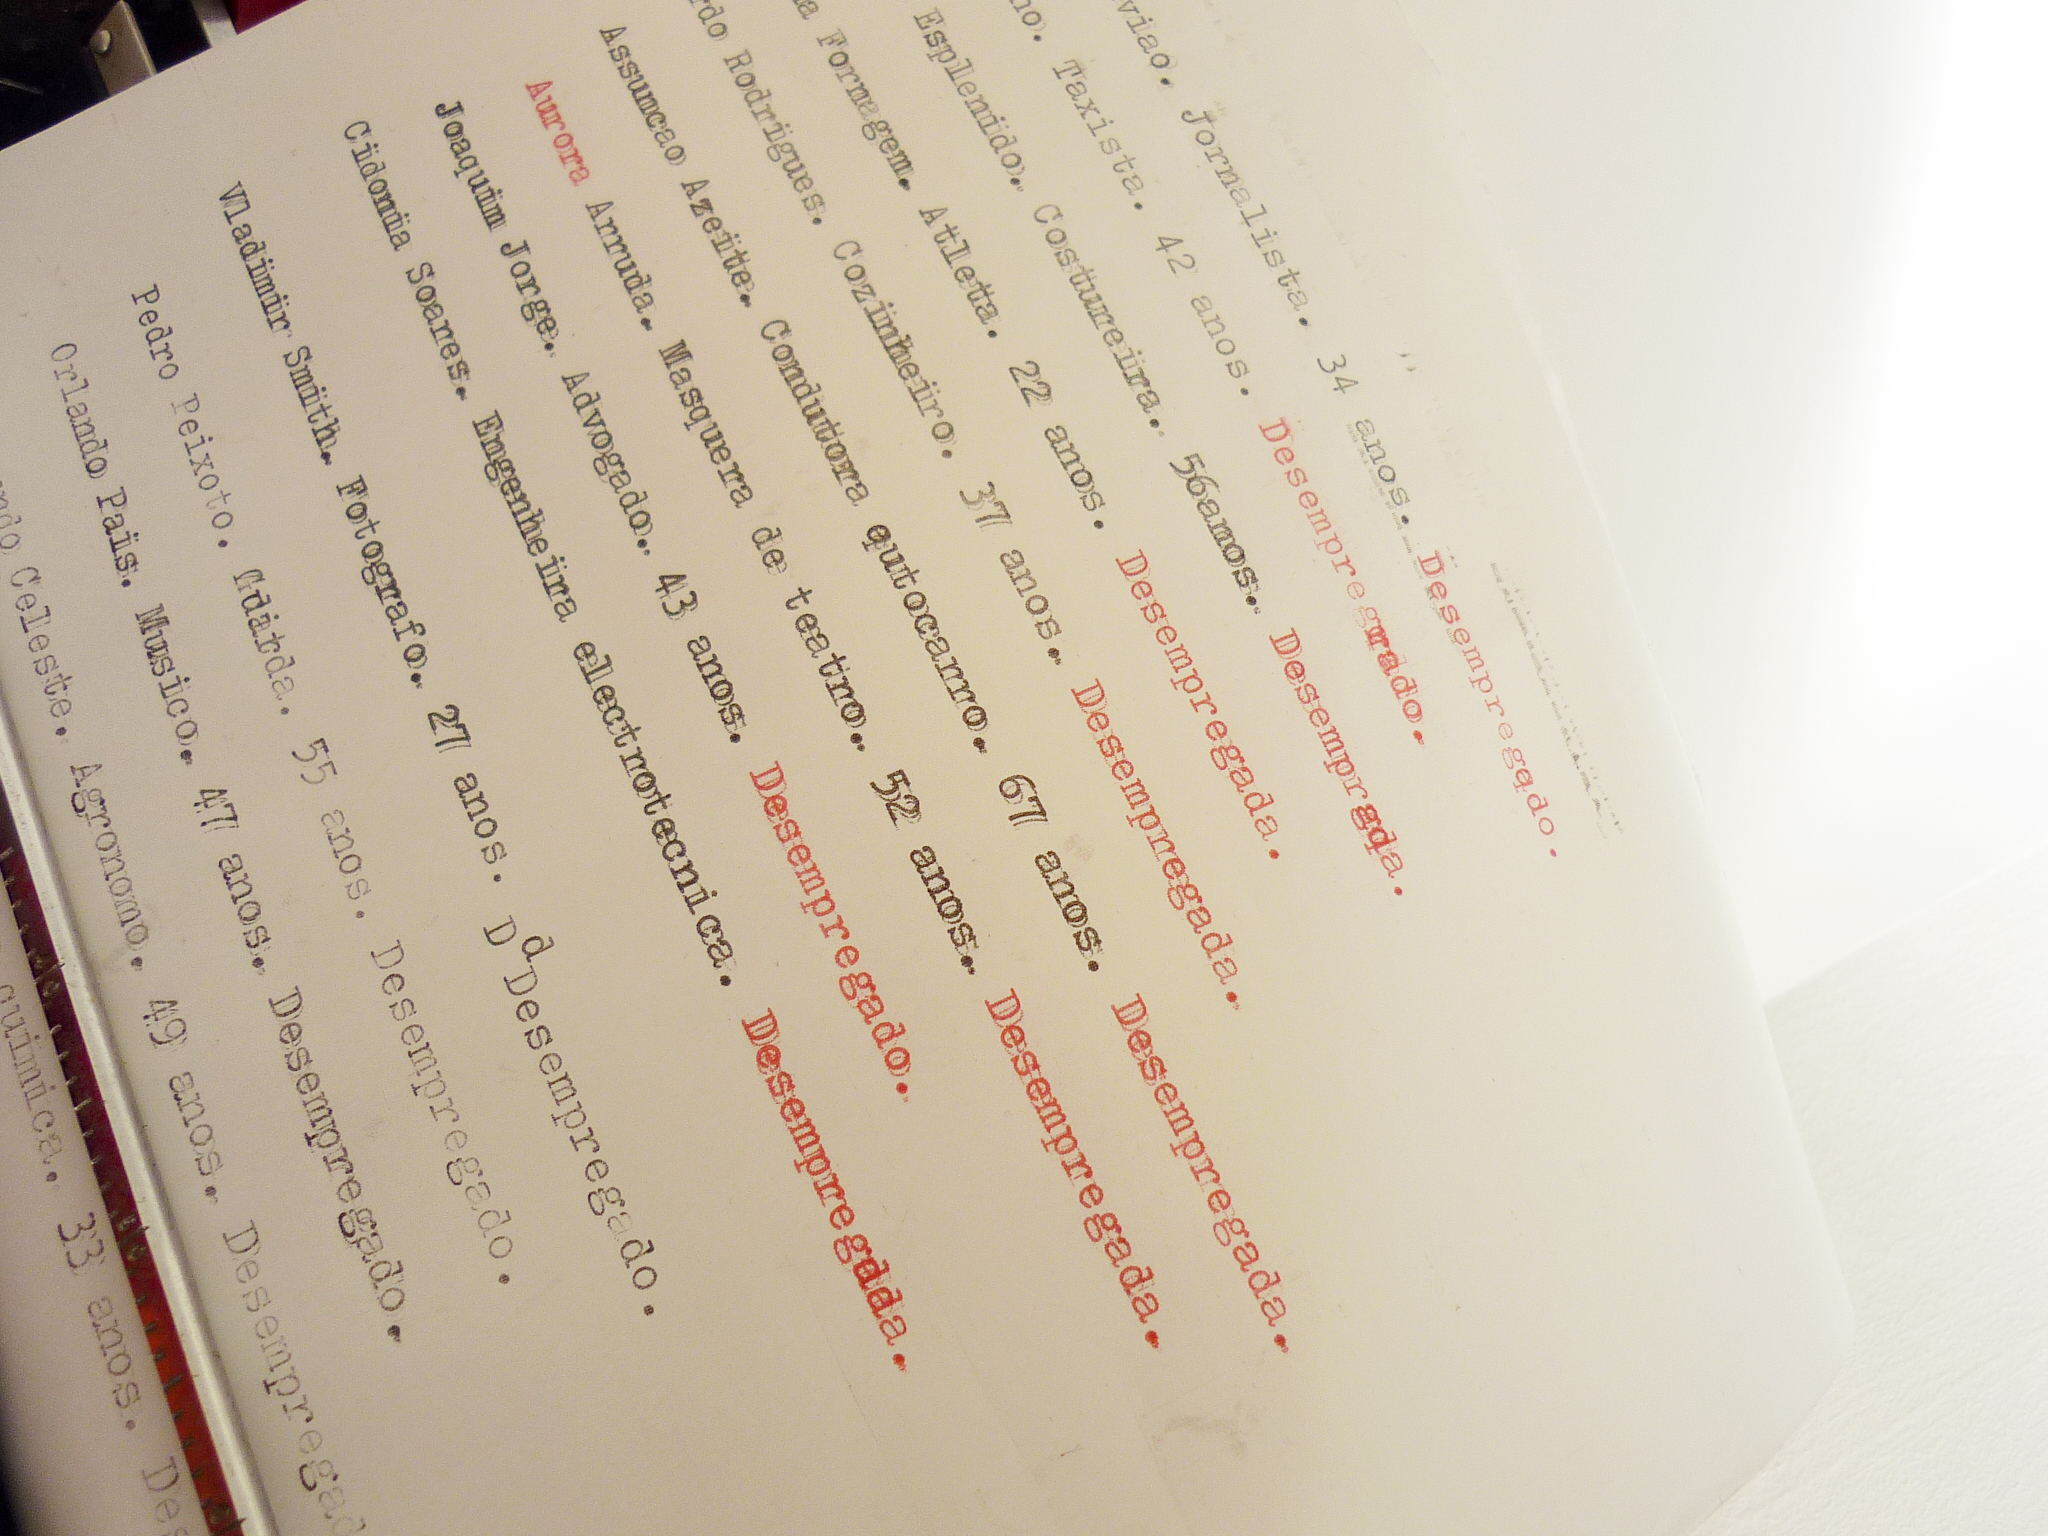 Jornalista. 34 anos. Desempregado.
Taxista. 42 anos. Desempregrado.
Esplenido. Costureira. 56anos. Desemprgda.
Formagem. Atleta. 22 anos. Desempregada.
Rodrigues. Cozinheiro. 37 anos. Desempregada.
Assuncao Azeite. Condutora qutocarro. 67 anos. Desempregada.
Aurora Arruda. Masquera de teatro. 52 anos. Desempregada.
Joaquim Jorge. Advogado. 43 anos. Desempregado.
Cidonia Soares. Engenheira electrotecnica. Desempregdda.
Vladimir Smith. Fotografo. 27 anos. D d Desempregado.
Pedro Peixoto. 55 anos. Desempregado.
Orlando Pais. Musico. 47 anos. Desempregado.
Celeste. Agronomo. 49 anos. Desempregad
quimica. 33 anos. Des